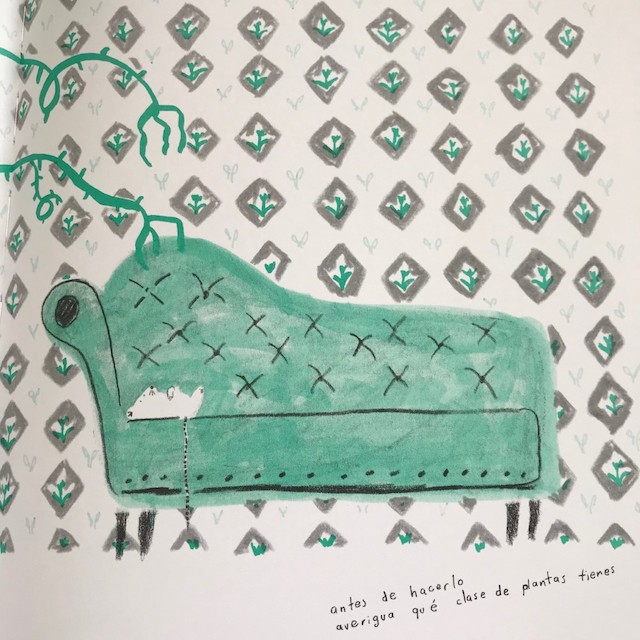 antes de hacerlo
averigua qué clase de plantas tienes